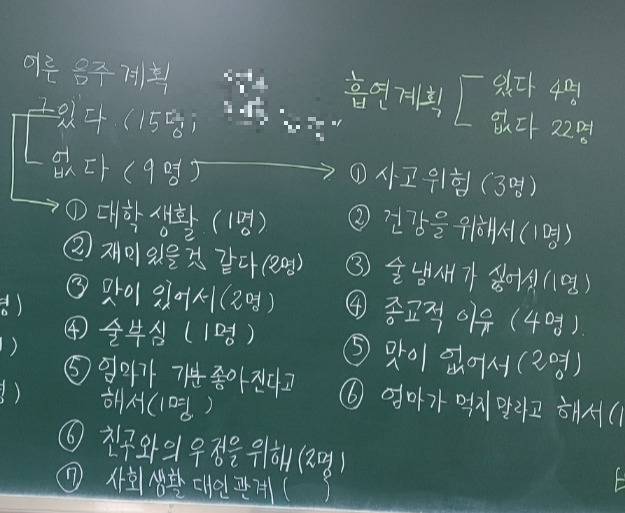 어른 음주계획
있다. (15명)
없다 (9명)
① 대학생활 (1명)
② 재미있을것 같다(2명)
③ 맛이 있어서(2명)
④ 술부심 (1명)
⑤ 엄마가 기분좋아진다고
해서(1명)
⑥ 친구와의 우정을 위해(2명)
⑦ 사회생활 대인관계 ( )
흡연계획
있다 4명
없다 22명
① 사고위험 (3명)
② 건강을 위해서(1명)
③ 술냄새가 싫어서(1명)
④ 종교적 이유 (4명).
⑤ 맛이 없어서(2명)
⑥ 엄마가 먹지말라고 해서(1
명)
)
명)